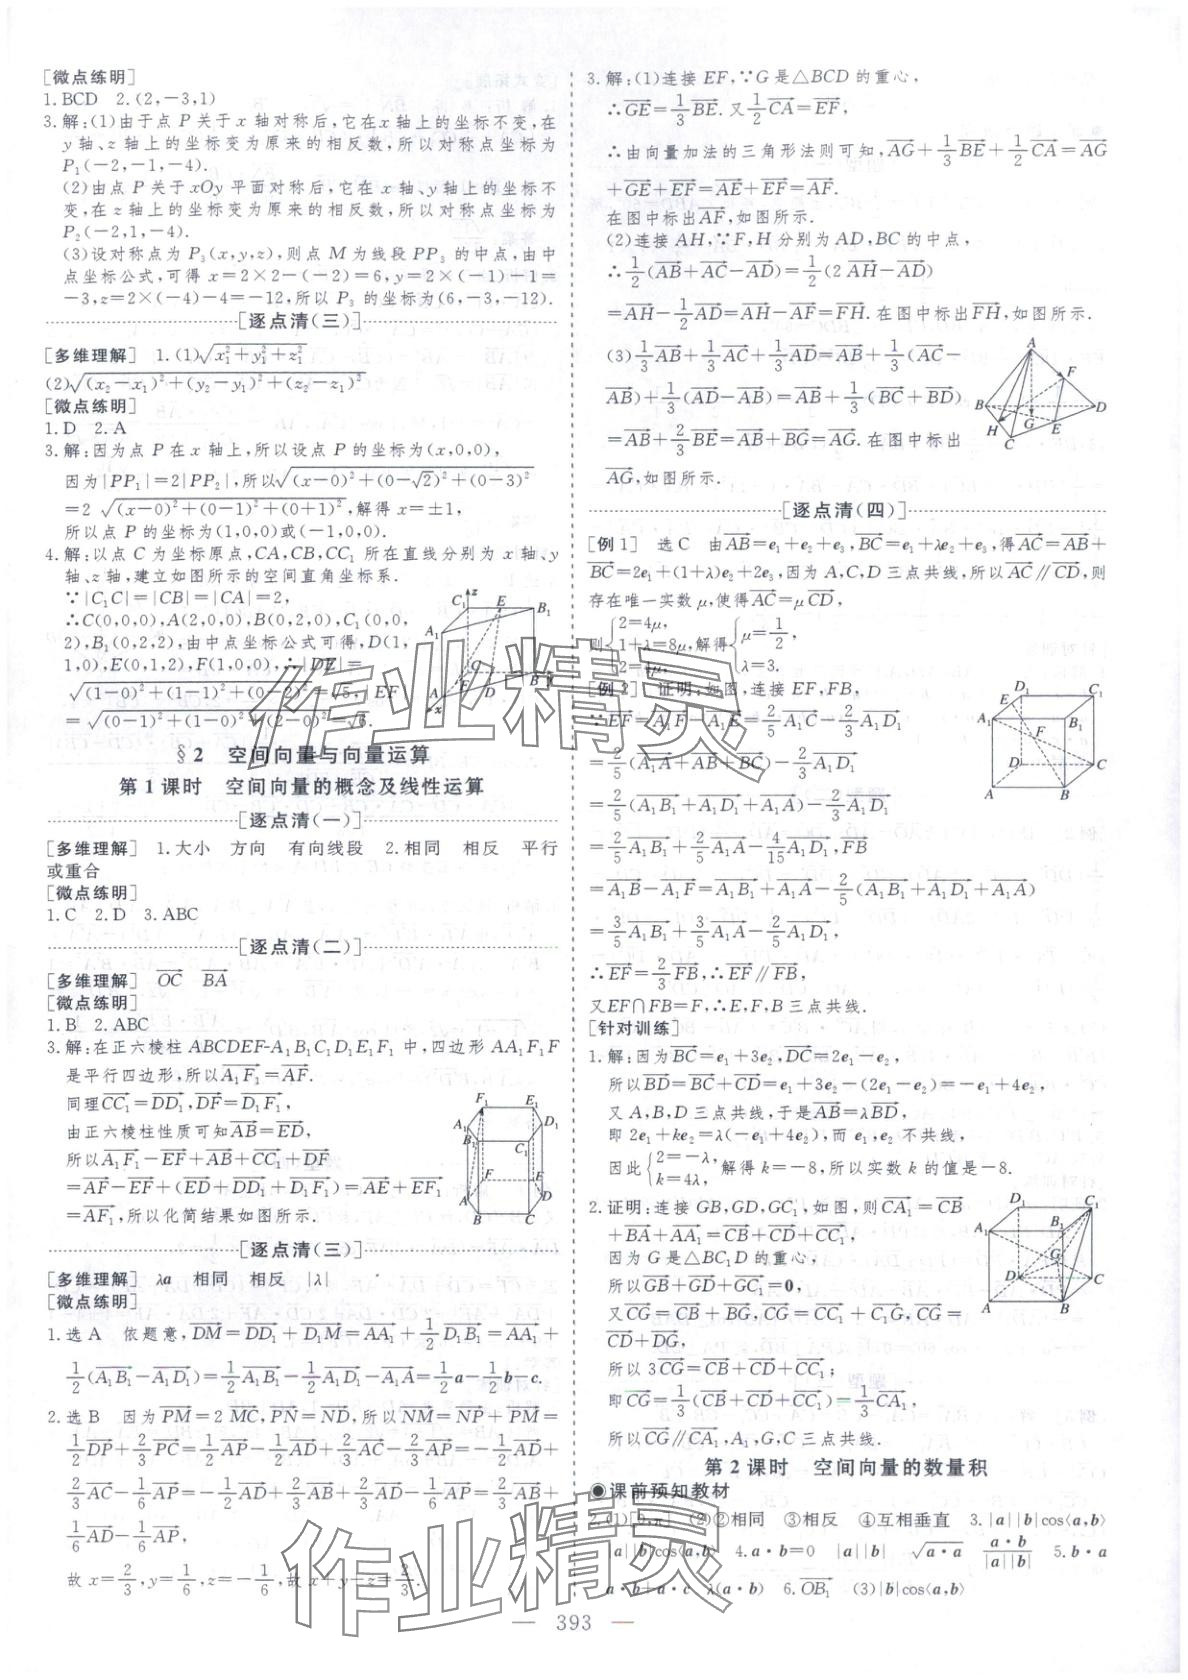 [微点练明]
1.BCD 2.(2,-3,1)
3.解:(1)由于点 P 关于 x 轴对称后,它在 x 轴上的坐标不变,在
y 轴、z 轴上的坐标变为原来的相反数,所以对称点坐标为
P₁(-2,-1,-4).
(2)由点 P 关于 xOy 平面对称后,它在 x 轴、y 轴上的坐标不
变,在 z 轴上的坐标变为原来的相反数,所以对称点坐标为
P₂(-2,1,-4).
(3)设对称点为 P₃(x,y,z),则点 M 为线段 PP₃ 的中点,由中
点坐标公式,可得 x=2×2-(-2)=6,y=2×(-1)-1=
-3,z=2×(-4)-4=-12,所以 P₃ 的坐标为(6,-3,-12).
[逐点清(三)]
[多维理解] 1.(1)√(x₁²+y₁²+z₁²)
(2)√((x₂-x₁)²+(y₂-y₁)²+(z₂-z₁)²)
[微点练明]
1.D 2.A
3.解:因为点 P 在 x 轴上,所以设点 P 的坐标为(x,0,0),
因为|PP₁|=2|PP₂|,所以√((x-0)²+(0-√2)²+(0-3)²)
=2√((x-0)²+(0-1)²+(0+1)²),解得 x=±1,
所以点 P 的坐标为(1,0,0)或(-1,0,0).
4.解:以点 C 为坐标原点,CA,CB,CC₁ 所在直线分别为 x 轴、y
轴、z 轴,建立如图所示的空间直角坐标系.
∵|C₁C|=|CB|=|CA|=2,
∴C(0,0,0),A(2,0,0),B(0,2,0),C₁(0,0,
2),B₁(0,2,2),由中点坐标公式可得,D(1,
1,0),E(0,1,2),F(1,0,0),∴|DE|=
√((1-0)²+(1-1)²+(0-2)²)=√5,|EF|
=√((0-1)²+(1-0)²+(2-0)²)=√6.
§2 空间向量与向量运算
第1课时 空间向量的概念及线性运算
[逐点清(一)]
[多维理解] 1.大小 方向 有向线段 2.相同 相反 平行
或重合
[微点练明]
1.C 2.D 3.ABC
[逐点清(二)]
[多维理解] OC→ BA→
[微点练明]
1.B 2.ABC
3.解:在正六棱柱 ABCDEF-A₁B₁C₁D₁E₁F₁ 中,四边形 AA₁F₁F
是平行四边形,所以A₁F₁→=AF→.
同理CC₁→=DD₁→,DF→=D₁F₁→,
由正六棱柱性质可知AB→=ED→,
所以A₁F₁→-EF→+AB→+CC₁→+DF→
=AF→-EF→+(ED→+DD₁→+D₁F₁→)=AE→+EF₁→
=AF₁→,所以化简结果如图所示.
[逐点清(三)]
[多维理解] λa 相同 相反 |λ|
[微点练明]
1.选A 依题意,DM→=DD₁→+D₁M→=AA₁→+1/2D₁B₁→=AA₁→+
1/2(A₁B₁→-A₁D₁→)=1/2A₁B₁→-1/2A₁D₁→-A₁A→=1/2a-1/2b-c.
2.选B 因为PM→=2MC→,PN→=ND→,所以NM→=NP→+PM→=
1/2DP→+2/3PC→=1/2AP→-1/2AD→+2/3AC→-2/3AP→=-1/2AD→+
2/3AC→-1/6AP→=-1/2AD→+2/3AD→+2/3AB→-1/6AP→=2/3AB→+
1/6AD→-1/6AP→,
故 x=2/3,y=1/6,z=-1/6,故 x+y+z=2/3.
3.解:(1)连接 EF,∵G 是△BCD 的重心,
∴GE→=1/3BE→.又1/2CA→=EF→,
∴由向量加法的三角形法则可知,AG→+1/3BE→+1/2CA→=AG→
+GE→+EF→=AE→+EF→=AF→.
在图中标出AF→,如图所示.
(2)连接 AH,∵F,H 分别为 AD,BC 的中点,
∴1/2(AB→+AC→-AD→)=1/2(2AH→-AD→)
=AH→-1/2AD→=AH→-AF→=FH→.在图中标出FH→,如图所示.
(3)1/3AB→+1/3AC→+1/3AD→=AB→+1/3(AC→-
AB→)+1/3(AD→-AB→)=AB→+1/3(BC→+BD→)
=AB→+2/3BE→=AB→+BG→=AG→.在图中标出
AG→,如图所示.
[逐点清(四)]
[例1] 选C 由AB→=e₁+e₂+e₃,BC→=e₁+λe₂+e₃,得AC→=AB→+
BC→=2e₁+(1+λ)e₂+2e₃,因为 A,C,D 三点共线,所以AC→∥CD→,则
存在唯一实数 μ,使得AC→=μCD→,
则{2=4μ, 1+λ=8μ, 2=4μ, 解得{μ=1/2, λ=3.
[例2] 证明:如图,连接 EF,FB,
∵EF→=A₁F→-A₁E→=2/5A₁C→-2/3A₁D₁→
=2/5(A₁A→+AB→+BC→)-2/3A₁D₁→
=2/5(A₁B₁→+A₁D₁→+A₁A→)-2/3A₁D₁→
=2/5A₁B₁→+2/5A₁A→-4/15A₁D₁→,FB→
=A₁B→-A₁F→=A₁B₁→+A₁A→-2/5(A₁B₁→+A₁D₁→+A₁A→)
=3/5A₁B₁→+3/5A₁A→-2/5A₁D₁→,
∴EF→=2/3FB→,∴EF→∥FB→,
又EF∩FB=F,∴E,F,B 三点共线.
[针对训练]
1.解:因为BC→=e₁+3e₂,DC→=2e₁-e₂,
所以BD→=BC→+CD→=e₁+3e₂-(2e₁-e₂)=-e₁+4e₂,
又 A,B,D 三点共线,于是AB→=λBD→,
即 2e₁+ke₂=λ(-e₁+4e₂),而 e₁,e₂ 不共线,
因此{2=-λ, k=4λ, 解得 k=-8,所以实数 k 的值是-8.
2.证明:连接 GB,GD,GC₁,如图,则CA₁→=CB→
+BA→+AA₁→=CB→+CD→+CC₁→,
因为 G 是△BC₁D 的重心,
所以GB→+GD→+GC₁→=0,
又CG→=CB→+BG→,CG→=CC₁→+C₁G→,CG→=
CD→+DG→,
所以 3CG→=CB→+CD→+CC₁→,
即CG→=1/3(CB→+CD→+CC₁→)=1/3CA₁→,
所以CG→∥CA₁→,A₁,G,C 三点共线.
第2课时 空间向量的数量积
课前预知教材
2.(1)[0,π] (2)②相同 ③相反 ④互相垂直 3.|a||b|cos⟨a,b⟩
|a||b|cos⟨a,b⟩ 4.a·b=0 √(a·a) a·b/(|a||b|) 5.b·a
a·b+a·c λ(a·b) 6.OB₁→ (3)|b|cos⟨a,b⟩
393
作业精灵
作业精灵